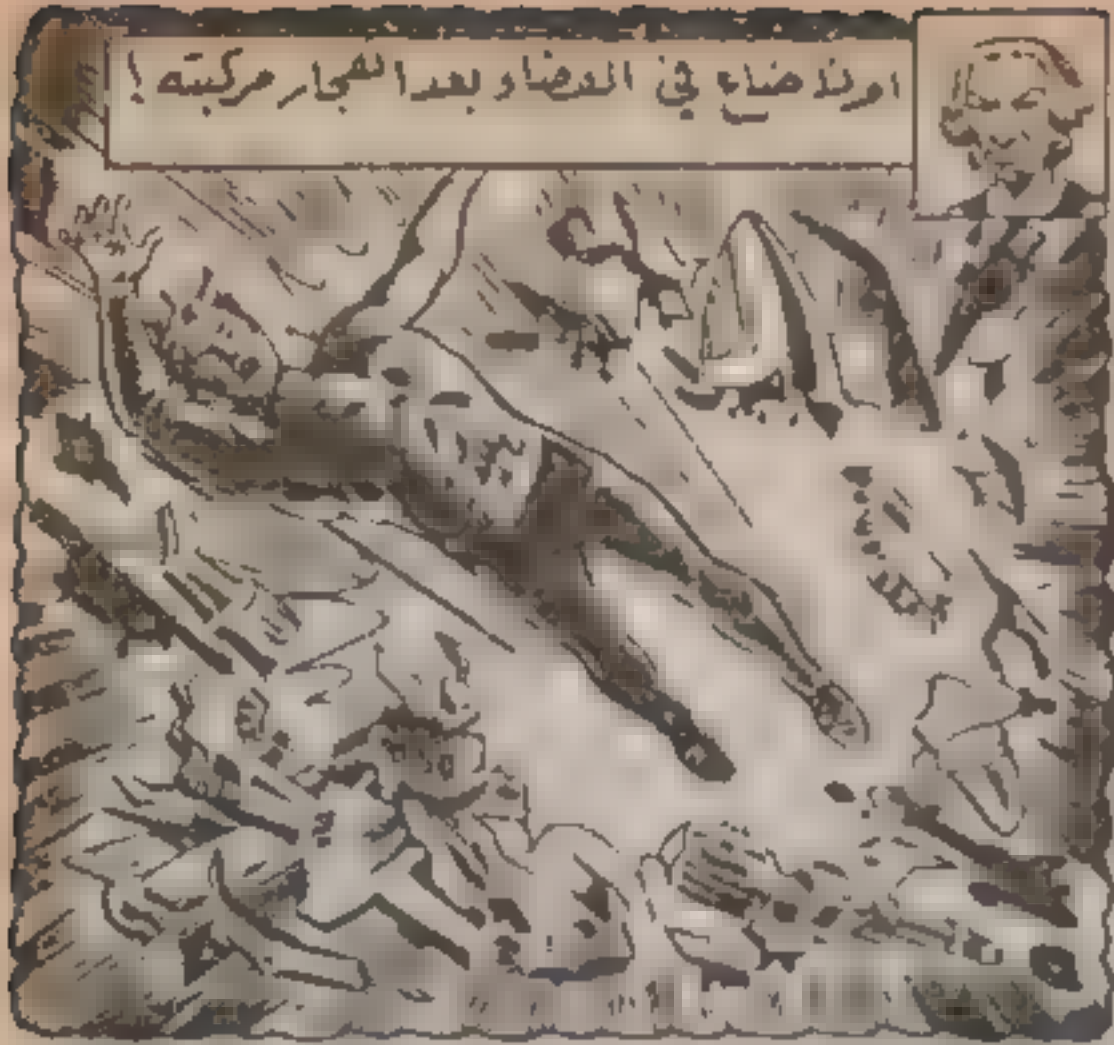 اورند ضاع في الفضاء بعد انفجار مركبته !